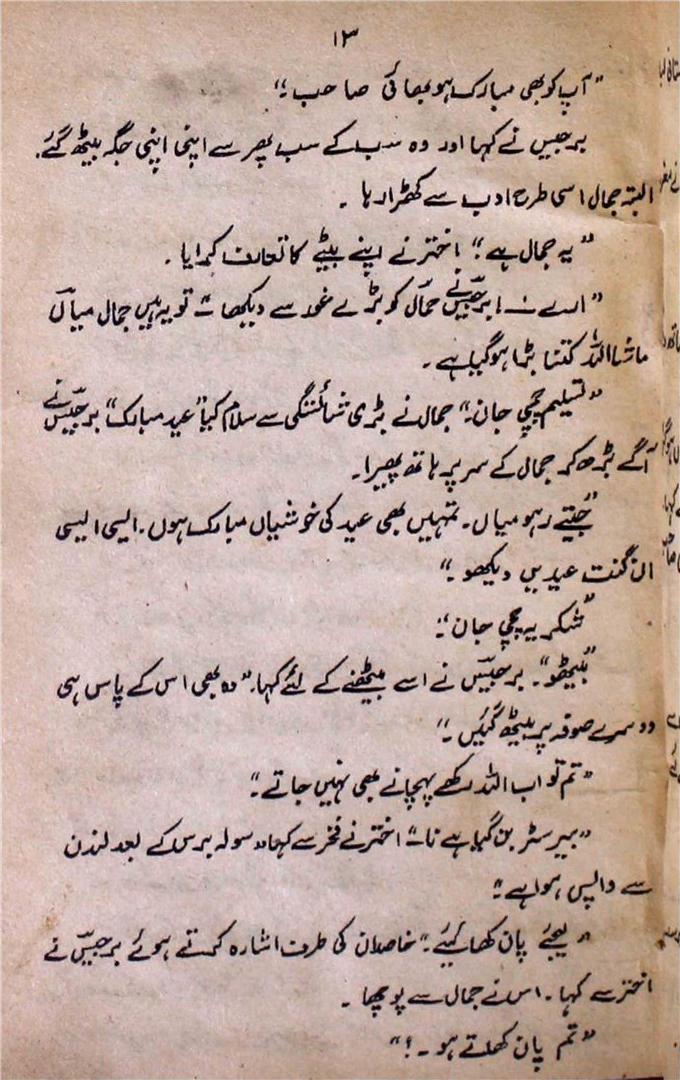 ۱۳
"آپ کو بھی مبارک ہو بھائی صاحب۔"
برجیس نے کہا اور وہ سب کے سب پھر سے اپنی اپنی جگہ بیٹھ گئے۔
البتہ جمال اسی طرح ادب سے کھڑا رہا۔
"یہ جمال ہے۔" اختر نے اپنے بیٹے کا تعارف کرایا۔
"ارے ـــ! برجیس نے جمال کو بڑے غور سے دیکھا ـ" تو یہ ہیں جمال میاں
ماشااللہ کتنا بڑا ہو گیا ہے۔
"تسلیم چچی جان۔" جمال نے بڑی شائستگی سے سلام کیا "عید مبارک" برجیس نے
آگے بڑھ کر جمال کے سر پر ہاتھ پھیرا۔
"جیتے رہو میاں۔ تمہیں بھی عید کی خوشیاں مبارک ہوں۔ ایسی ایسی
ان گنت عیدیں دیکھو۔"
"شکریہ چچی جان"۔
"بیٹھو"۔ برجیس نے اسے بیٹھنے کے لئے کہا۔ "وہ بھی اس کے پاس ہی
دوسرے صوفہ پر بیٹھ گئیں۔"
"تم تو اب اللہ رکھے پہچانے بھی نہیں جاتے۔"
"بیرسٹر بن گیا ہے نا۔" اختر نے فخر سے کہا "سولہ برس کے بعد لندن
سے واپس ہوا ہے۔"
"لیجئے پان کھائیے۔" خاصدان کی طرف اشارہ کرتے ہوئے برجیس نے
اختر سے کہا۔ اس نے جمال سے پوچھا۔
"تم پان کھاتے ہو۔؟"